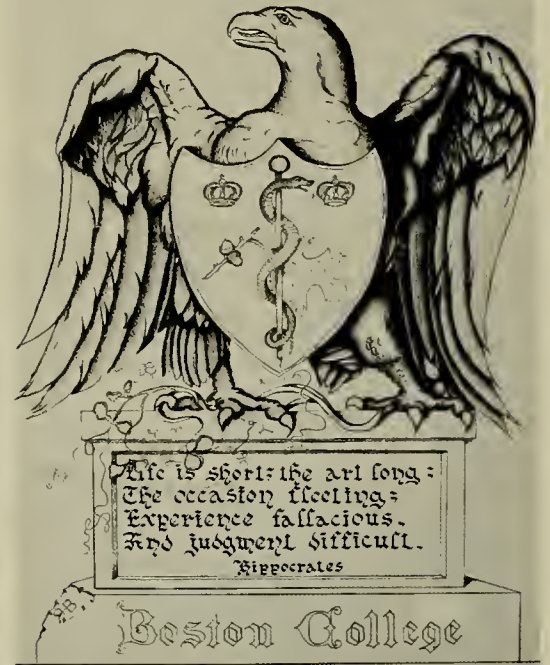 Life is short: the art long:
The occasion fleeting:
Experience fallacious.
And judgment difficult.
Hippocrates
Boston College